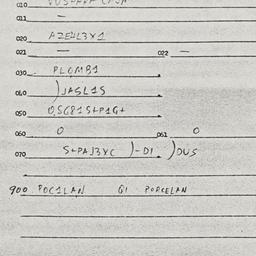 010
011 –
020 AZE4L3X1
021 – 022 –
030 PLOMB1
040 )JASL1S
050 0,5G81S+P1G+
060 0 061 0
070 S+PAJ3XC )-DI )OUS
900 POC1LAN GI PORCELAN